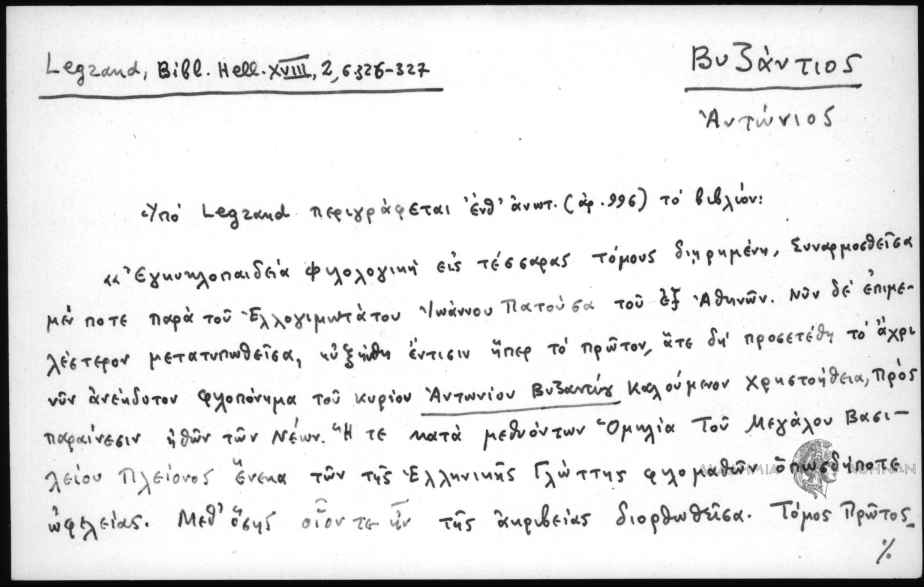 Legrand, Bibl. Hell. XVIII, 2, σ 326-327
Βυζάντιος
Ἀντώνιος
Ὑπό Legrand περιγράφεται ἐνθ' ἀνωτ. (ἀρ. 996) τό βιβλίον:
«Ἐγκυκλοπαιδεία φιλολογική εἰς τέσσαρας τόμους διῃρημένη, Συναρμοσθεῖσα
μέν ποτε παρά τοῦ Ἐλλογιμωτάτου Ἰωάννου Πατούσα τοῦ ἐξ Ἀθηνῶν. Νῦν δέ ἐπιμε-
λέστερον μετατυπωθεῖσα, ηὐξήνθη ἔντισιν ἤπερ τό πρῶτον, ἅτε δή προσετέθη τό ἄχρι
νῦν ἀνέκδοτον φιλοπόνημα τοῦ κυρίου Ἀντωνίου Βυζαντίου καλούμενον Χρηστοήθεια, Πρός
παραίνεσιν ἠθῶν τῶν Νέων. Ἥ τε κατά μεθυόντων Ὁμιλία Τοῦ Μεγάλου Βασι-
λείου Πλείονος ἕνεκα τῶν τῆς Ἑλληνικῆς Γλώττης φιλομαθῶν ὁπωσδήποτε
ὠφελείας. Μεθ' ὅσης οἷον τε ἦν τῆς ἀκριβείας διορθωθεῖσα. Τόμος Πρῶτος
%